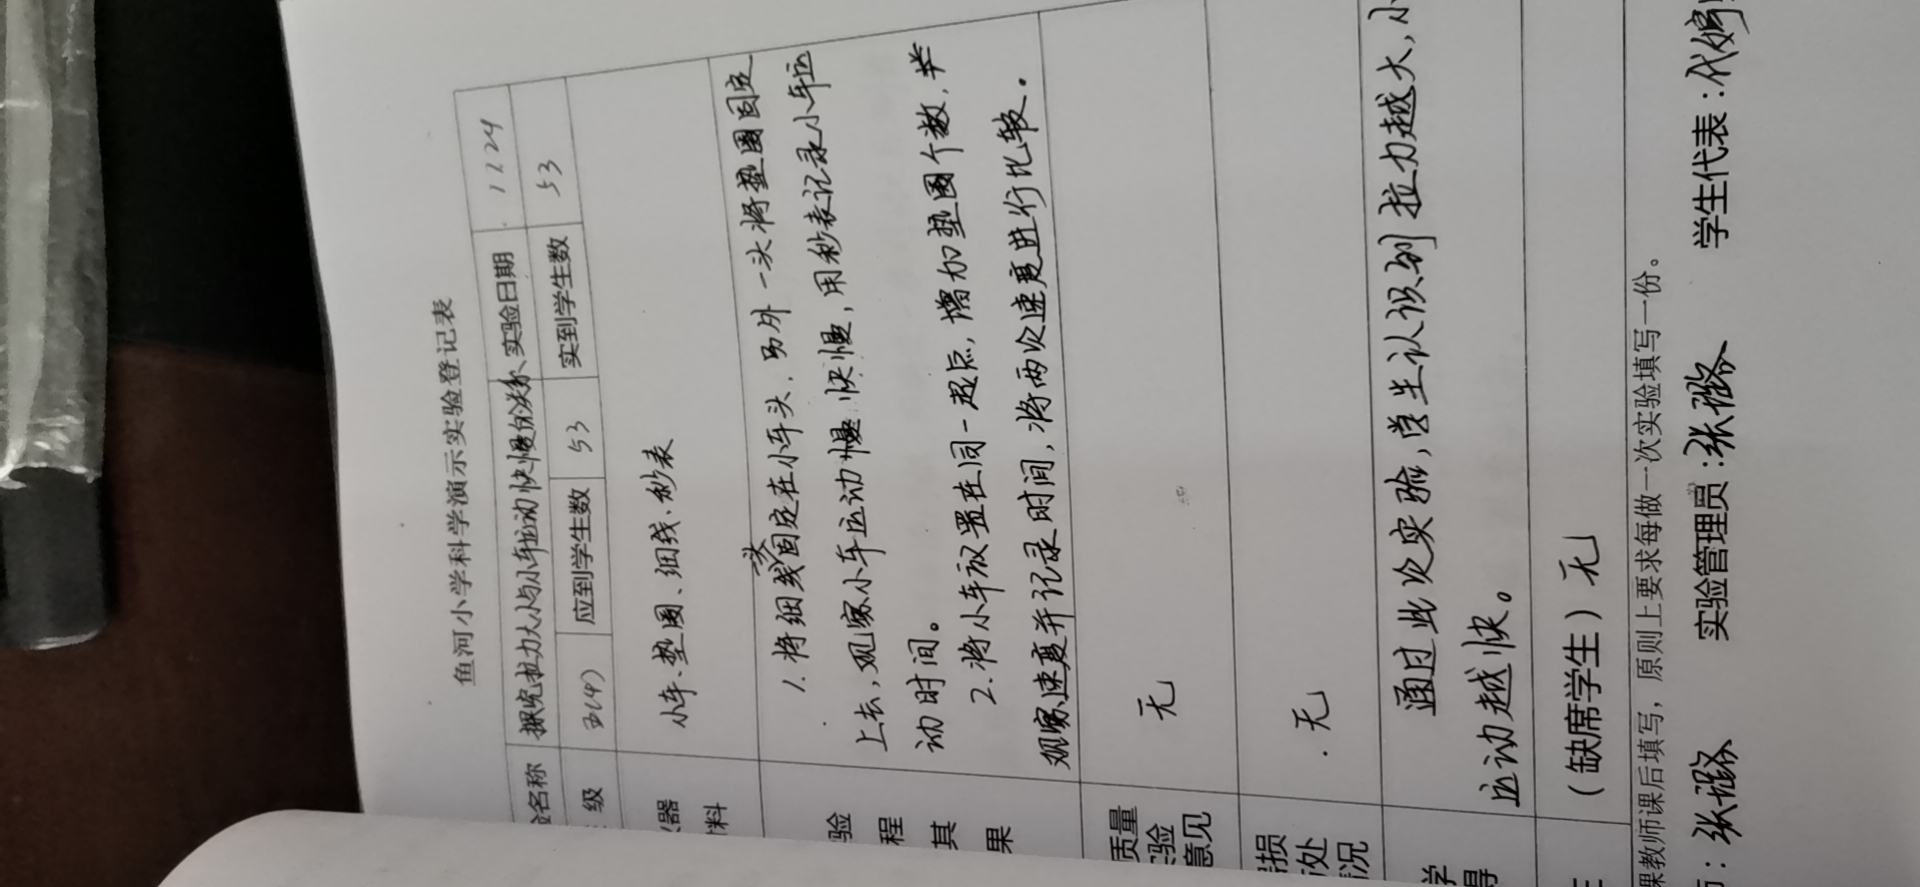 鱼河小学科学演示实验登记表
名称 探究拉力大小与小车运动快慢的关系 实验日期 1124
级 三(4) 应到学生数 53 实到学生数 53
器 料 小车、垫圈、细线、秒表
验 程 其 果
1.将细线一头固定在小车头,另外一头将垫圈固定
上去,观察小车运动快慢,用秒表记录小车运
动时间。
2.将小车放置在同一起点,增加垫圈个数,并
观察速度并记录时间,将两次速度进行比较。
质量 验 意见 无
损 处 情况 无
学 得
通过此次实验,学生认识到拉力越大,小
运动越快。
(缺席学生)无
课教师课后填写,原则上要求每做一次实验填写一份。
实验管理员: 学生代表: